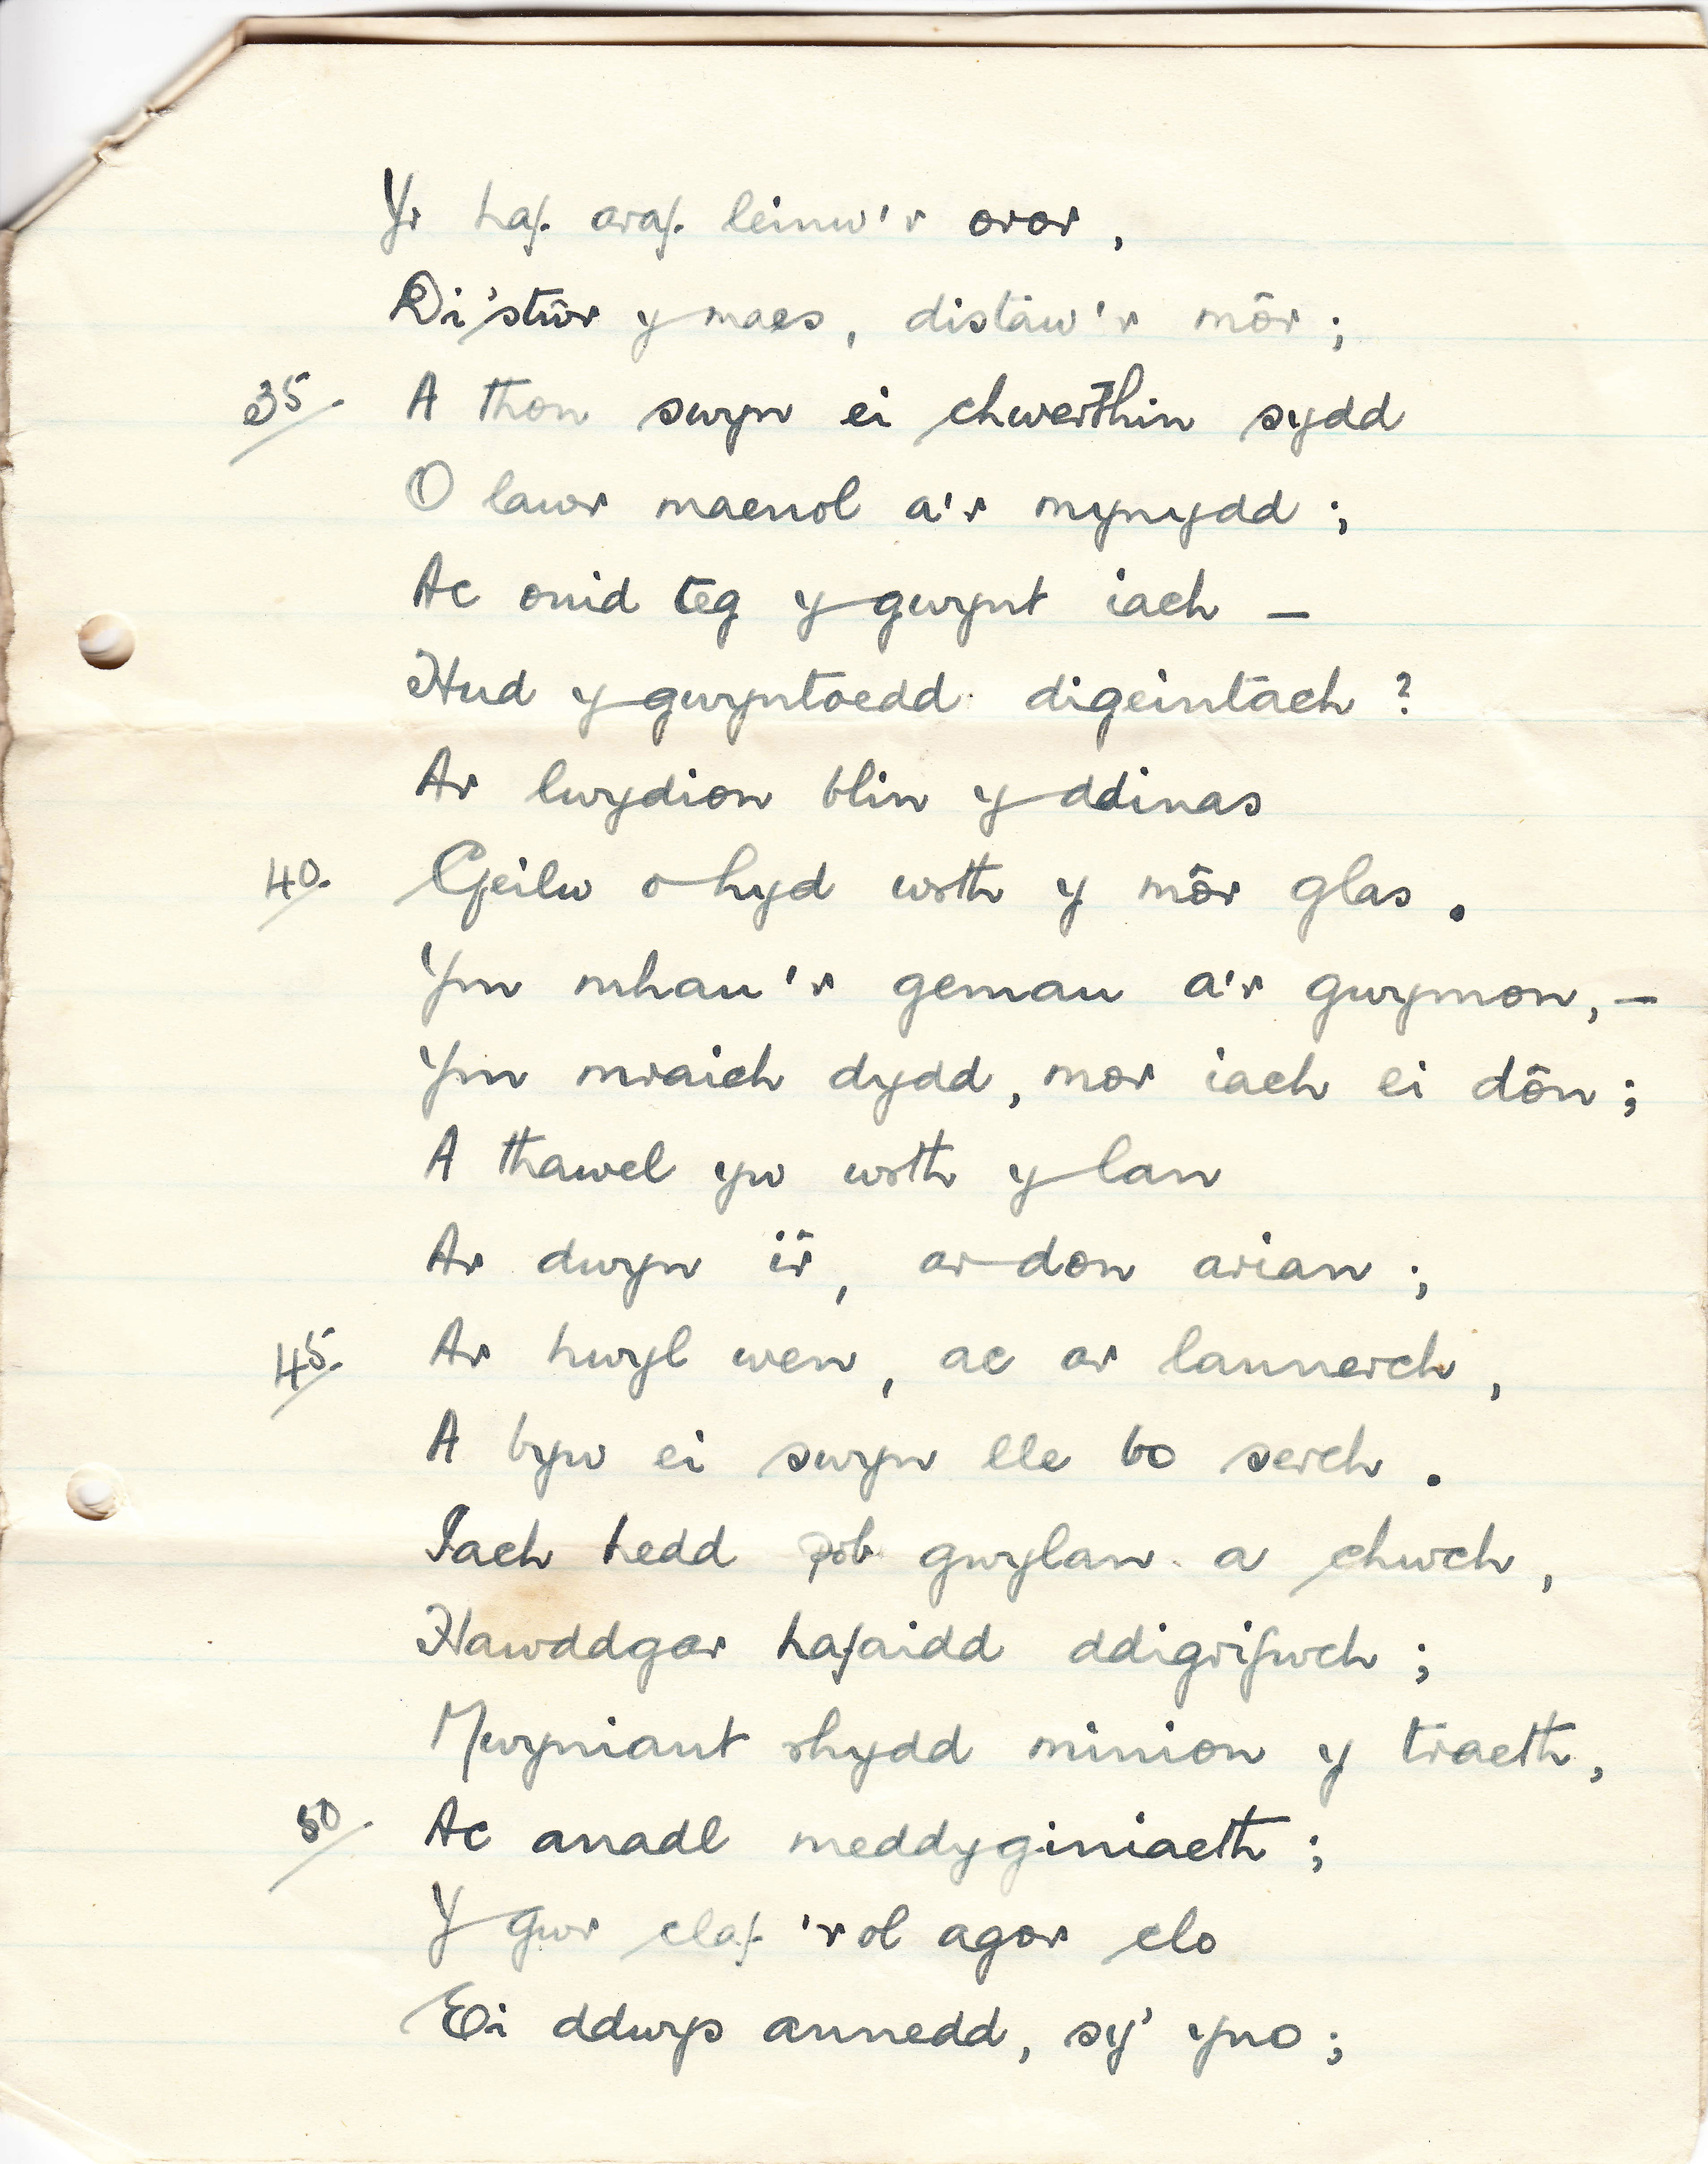 Yr haf araf leinw'r oror,
Di'stŵr y maes, distaw'r môr;
35. A thon swyn ei chwerthin sydd
O lawr maenol a'r mynydd;
Ac onid teg y gwynt iach –
Hud y gwyntoedd digeintach?
Ar lwydion blin y ddinas
40. Geilw o hyd wrth y môr glas.
Ym mhau'r gemau a'r gwymon, –
Ym mraich dydd, mor iach ei dôn;
A thawel yw wrth y lan
Ar dwyn ir, ar don arian;
45. Ar hwyl wen, ac ar lannerch,
A byw ei swyn lle bo serch.
Iach hedd pob gwylan a chwch,
Hawddgar hafaidd ddigrifwch;
Mwyniant rhydd minion y traeth,
50. Ac anadl meddyginiaeth;
Y gwr claf 'rol agor clo
Ei ddwys annedd, sy' yno;